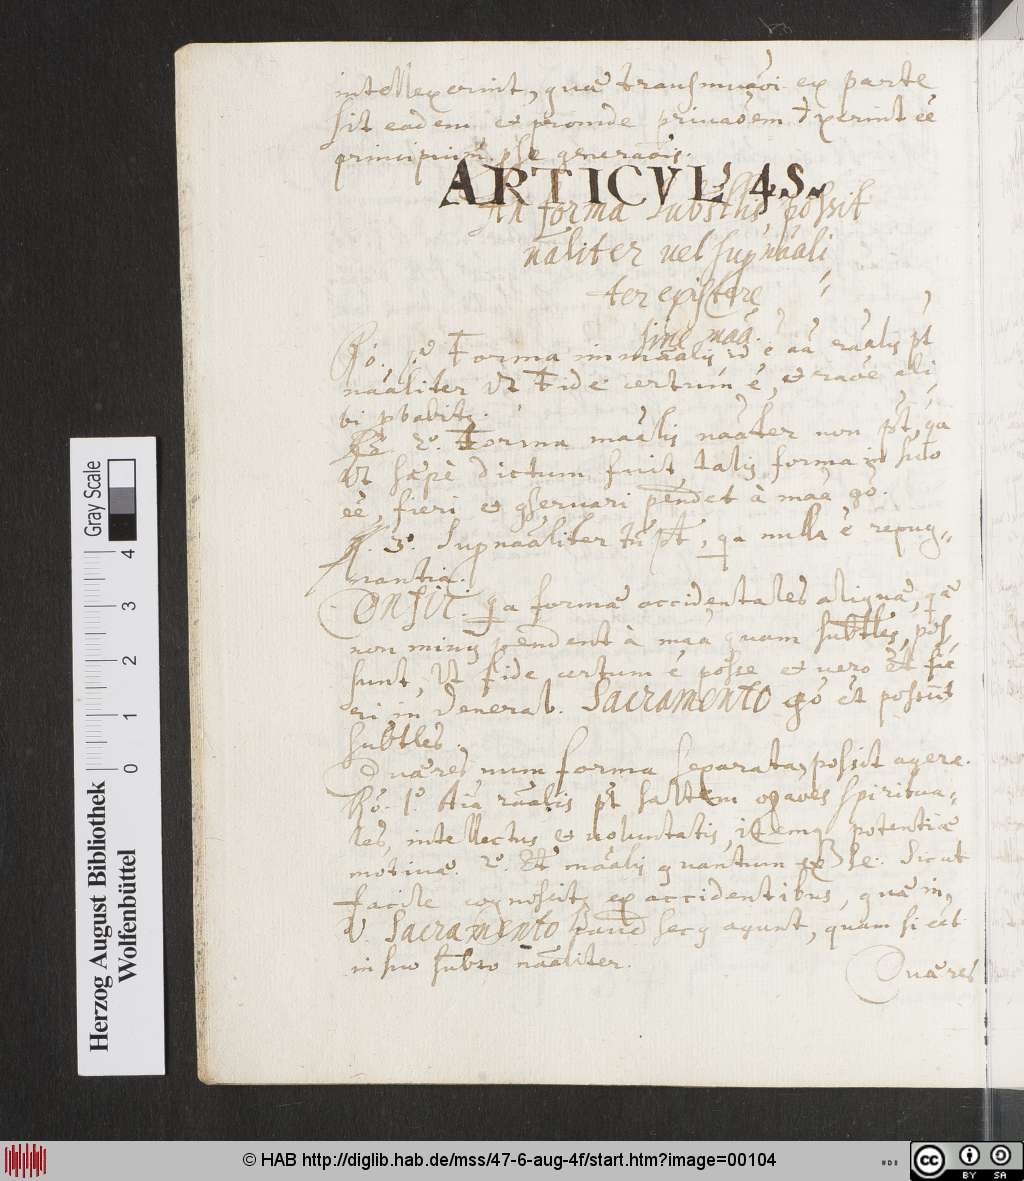 intellexerint, quæ transmuaõi ex parte
sit eadem et proinde priuaõem dixerint eé
principium pse generaõis.
ARTICVL 4S.
An forma subs̃tlis possit
nãliter uel supnãali
ter existere
sine maã.
Rõ. 1º Forma immãalis id é aã rãalis pt
nãaliter Vt Fide certum é, et raõe ali
bi pbabitʒ.
R. 2º. Forma maãlis naãter non pt, qa
Vt sæpè dictum fuit, talis forma in suo
eé, fieri et gseruari pendet à maã gõ.
R. 3º. Supnaãliter tñ pt, qa nulla é repug=
nantia.
Confir. qa formæ accidentales aliquæ, quæ
non minq pendent à maã quam subt̃les, pos
sunt, Vt fide certum é posse et uero et fie
ri in Venerab. Sacramento gõ et possunt
subt̃les.
Quæres num forma separata possit agere.
Rõ. 1º. Aĩa rãalis pt saltem opaões spiritua=
les, intellectus et uoluntatis, itemq potentiæ
motiuæ. 2º. Et maãlis quantum ex se. Sicut
facile cognoscitʒ ex accidentibus, quæ in
V. Sacramento haud secq agunt, quam si eet
in suo subto nãaliter.
Quæres
Herzog August Bibliothek
Wolfenbüttel
0 1 2 3 4
Gray Scale
© HAB http://diglib.hab.de/mss/47-6-aug-4f/start.htm?image=00104
cc BY SA